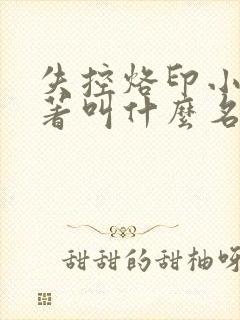 失控烙印小
著叫什麼名
甜甜的甜柚呀